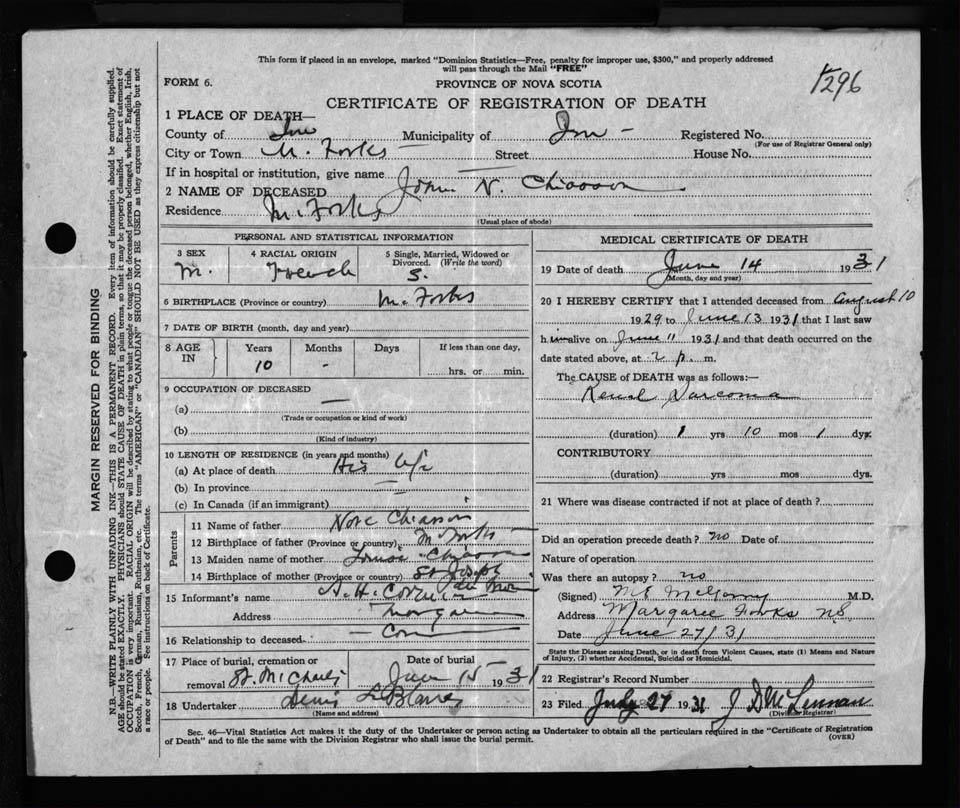 This form if placed in an envelope, marked "Dominion Statistics—Free, penalty for improper use, $300," and properly addressed
will pass through the Mail "FREE"
1296
FORM 6.
PROVINCE OF NOVA SCOTIA
CERTIFICATE OF REGISTRATION OF DEATH
1 PLACE OF DEATH—
County of Inv Municipality of Inv - Registered No.
(For use of Registrar General only)
City or Town M. Forks Street House No.
If in hospital or institution, give name
2 NAME OF DECEASED John N. Chiasson
Residence M. Forks
(Usual place of abode)
PERSONAL AND STATISTICAL INFORMATION
3 SEX 4 RACIAL ORIGIN 5 Single, Married, Widowed or
Divorced. (Write the word)
M. French S.
6 BIRTHPLACE (Province or country) M. Forks
7 DATE OF BIRTH (month, day and year)
8 AGE IN Years Months Days If less than one day,
10 - hrs. or min.
9 OCCUPATION OF DECEASED
(a) —
(Trade or occupation or kind of work)
(b)
(Kind of industry)
10 LENGTH OF RESIDENCE (in years and months)
(a) At place of death His life
(b) In province —
(c) In Canada (if an immigrant)
Parents
11 Name of father Chiasson
12 Birthplace of father (Province or country) M Forks
13 Maiden name of mother Louise Chiasson
14 Birthplace of mother (Province or country) St Joseph
15 Informant's name A. H. Cormier
Address Margaree
16 Relationship to deceased
17 Place of burial, cremation or Date of burial
removal St. Michaels June 15 1931
18 Undertaker LeBlanc
(Name and address)
MEDICAL CERTIFICATE OF DEATH
19 Date of death June 14 1931
(Month, day and year)
20 I HEREBY CERTIFY that I attended deceased from August 10
1929 to June 13 1931 that I last saw
him alive on June 11 1931 and that death occurred on the
date stated above, at 2 p. m.
The CAUSE of DEATH was as follows:—
Renal Sarcoma
(duration) 1 yrs 10 mos 1 dys.
CONTRIBUTORY
(duration) yrs. mos. dys.
21 Where was disease contracted if not at place of death?
Did an operation precede death? no Date of
Nature of operation
Was there an autopsy? no
(Signed) M.D.
Address Margaree Forks NS
Date June 27/31
State the Disease causing Death, or in death from Violent Causes, state (1) Means and Nature
of Injury, (2) whether Accidental, Suicidal or Homicidal.
22 Registrar's Record Number
23 Filed July 27 1931 J D McLennan
(Division Registrar)
Sec. 46—Vital Statistics Act makes it the duty of the Undertaker or person acting as Undertaker to obtain all the particulars required in the "Certificate of Registration
of Death" and to file the same with the Division Registrar who shall issue the burial permit.
(OVER)
MARGIN RESERVED FOR BINDING
N.B.—WRITE PLAINLY WITH UNFADING INK—THIS IS A PERMANENT RECORD. Every item of information should be carefully supplied.
AGE should be stated EXACTLY. PHYSICIANS should STATE CAUSE OF DEATH in plain terms, so that it may be properly classified. Exact statement of
OCCUPATION is very important. RACIAL ORIGIN will be described by stating to what people or tongue the deceased person belonged, whether English, Irish,
Scotch, French, German, Russian, Ruthenian, etc. The terms "AMERICAN" or "CANADIAN" SHOULD NOT BE USED as they express citizenship but not
a race or people. See instructions on back of Certificate.